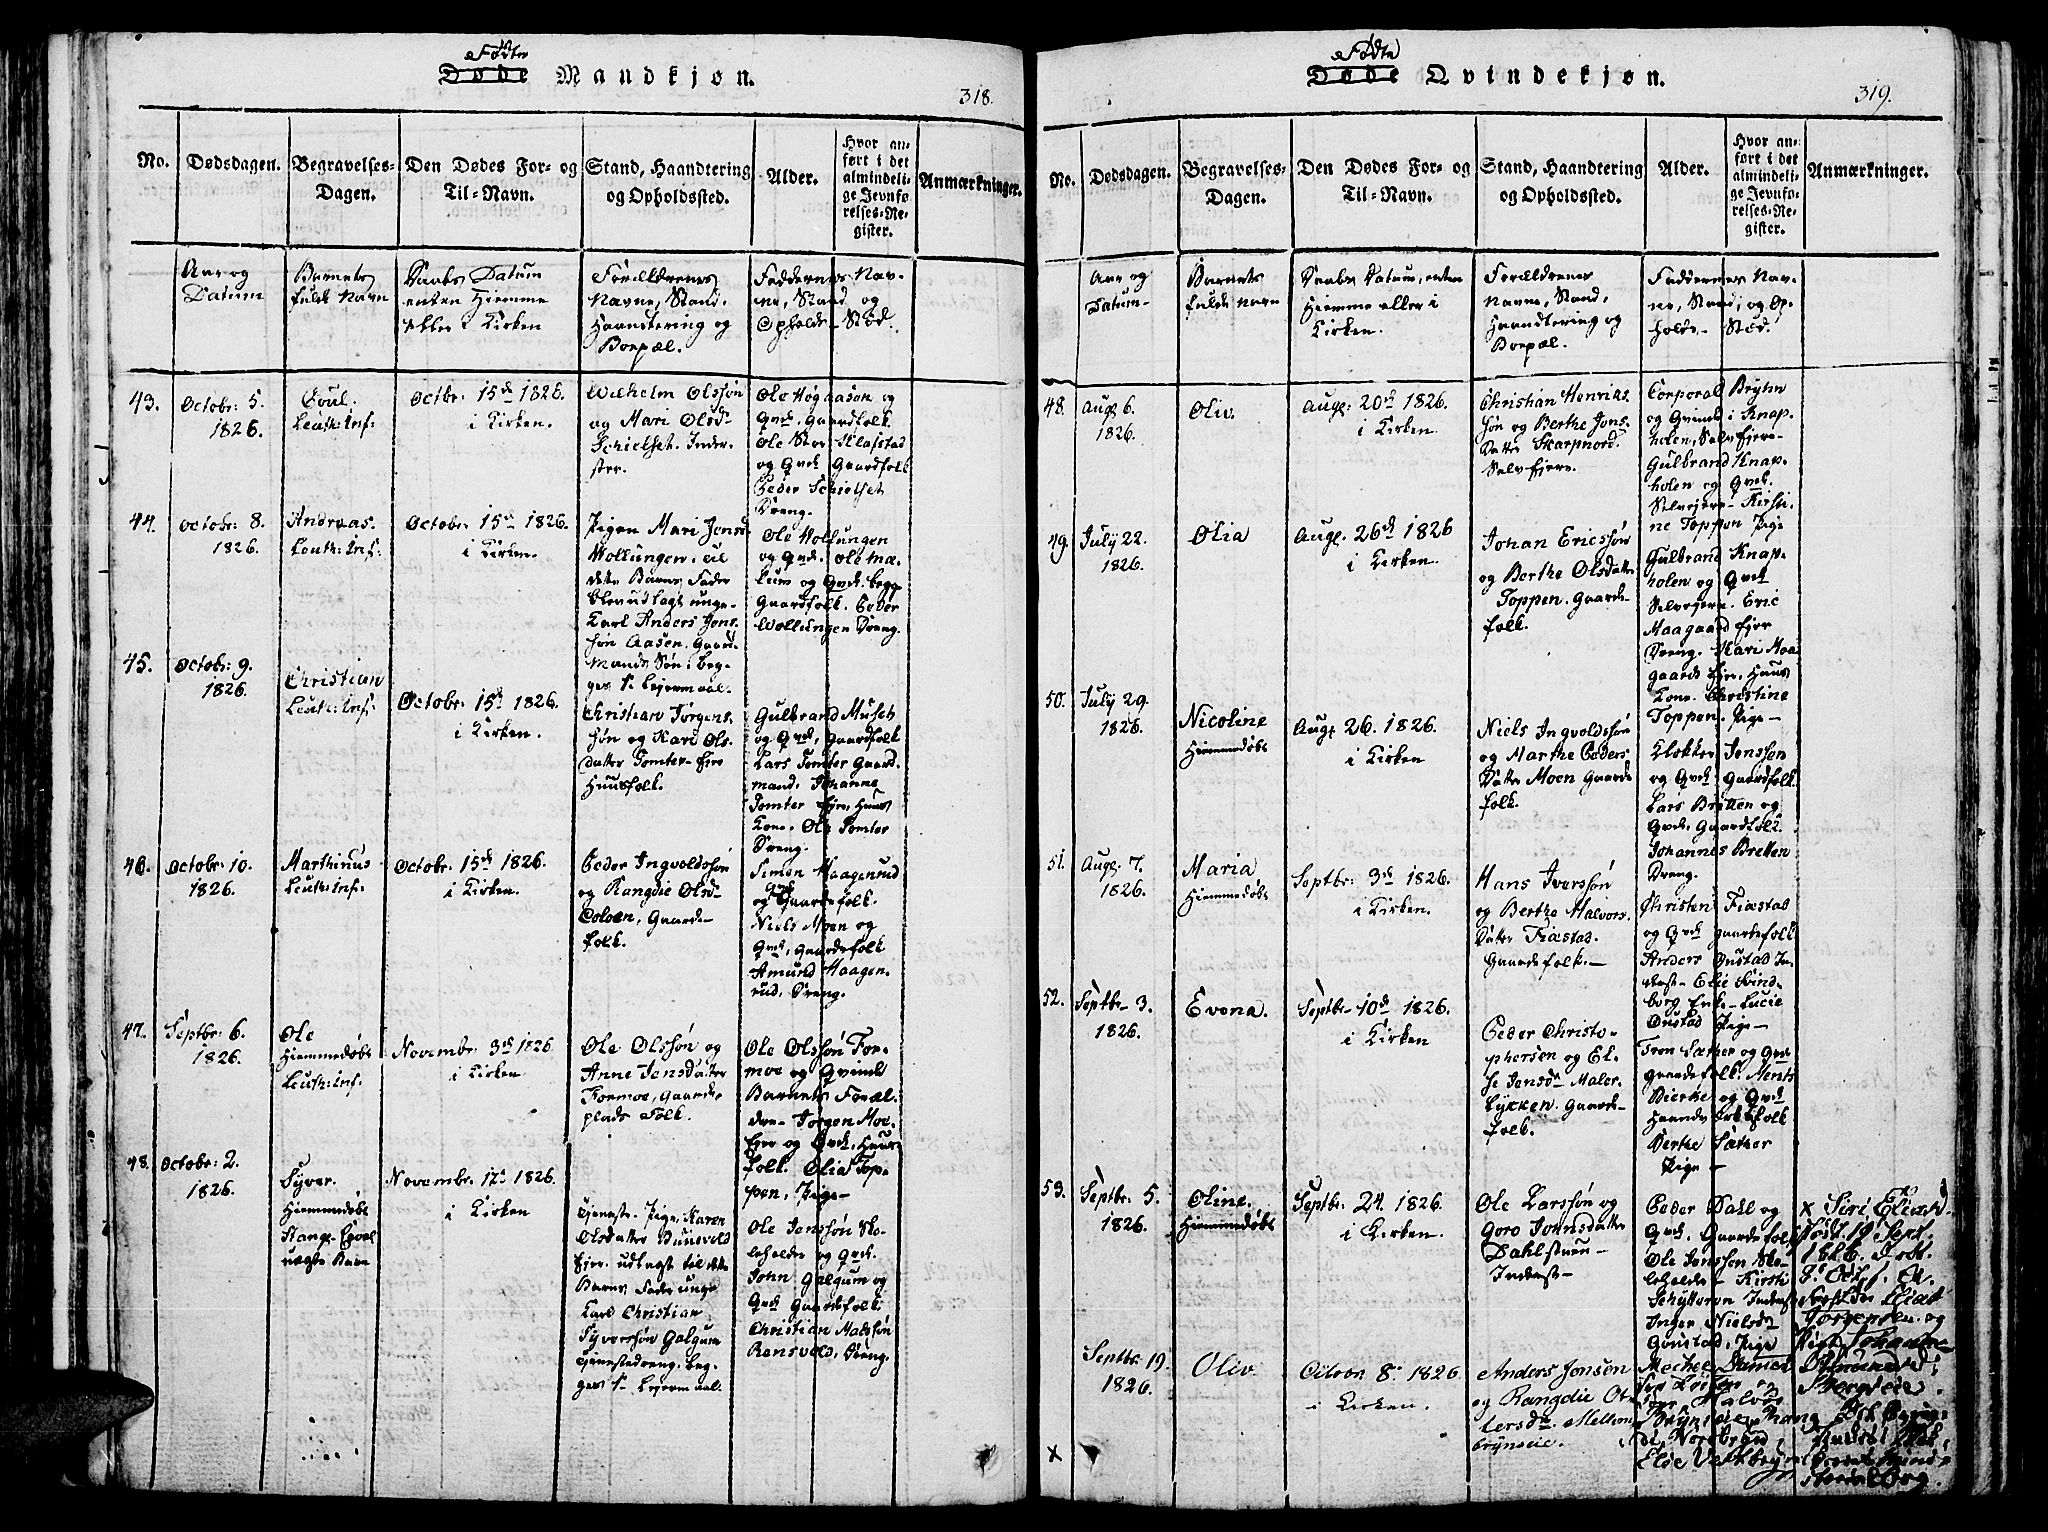 Fødte
Døde Mandkjøn.
318.
No.
Dødsdagen.
Begravelses-
Dagen.
Den Dødes For- og
Til-Navn.
Stand, Haandtering
og Opholdssted.
Alder.
Hvor an-
ført i det
almindeli-
ge Jevnfø-
relses-Re-
gister.
Anmærkninger.
Aar og
Datum
Barnets
fulde Navn
Daabs Datum
enten Hiemme
eller i Kirken
Forældrenes
Navne, Stand,
Haandtering og
Bopæl.
Faddernes Nav-
ne, Stand og
Opholds-Stæd.
43.
Octobr: 5.
1826.
Poul.
Leuth: Inf:
Octbr: 15de 1826.
i Kirken.
Wilhelm Olssøn
og Mari Olsd
Schielset. Inder-
ster.
Ole Høgaasen og
Qvd. Gaardfolk.
Ole Stor Illajstad
og Qvd. Gaardfolk
Peder Schielset
Dreng.
44.
Octobr: 8.
1826.
Andreas.
Leuth: Inf:
October 15de 1826.
i Kirken.
Pigen Mari Jonsd
Wollungen. til
dette Barns Fader
blev udlagt unge-
Karl Anders Jons-
søn Aasen. Gaard-
mands Søn: beg-
ges 1ste Lejermaal.
Ole Wollungen
og Qvd. Ole Mæ-
lum og Qvd. begge
Gaardfolk. Peder
Wollungen Dreng.
45.
Octobr: 9.
1826.
Christian
Leuth: Inf:
Octobr: 15de 1826.
i Kirken.
Christian Jørgens-
søn og Kari Ols-
datter Tomter-Eje
Huusfolk.
Gulbrand Muset
og Qvd. Gaardfolk
Lars Tomter Gaard-
mand. Johanne
Tomter Eje, Huus
Kone. Ole Tomter
Dreng.
46.
Octobr: 10.
1826.
Marthinus
Leuth: Inf:
Octobr: 15de 1826.
i Kirken.
Peder Ingvoldssøn
og Rangdie Olsd-
Gaarde-
folk.
Simen Haagenrud
og Qvd. Gaardefolk.
Niels Moen og
Qvd. Gaardefolk
Amund Haagen-
rud, Dreng.
47.
Septbr: 6.
1826.
Ole
Hiemmedøbt
Leuth: Inf:
Novembr: 3de 1826
i Kirken
Ole Olssøn og
Anne Jensdatter
Formoe, Gaarde-
plads Folk.
Ole Olssøn For-
moe og Qvinde
Barnets Foræl-
dre- Jørgen Moe-
Eje og Qvd. Huus-
folk. Olia Top-
pen, Pige-
48.
Octobr: 2.
1826.
Syver.
Hiemmedøbt
Stange-
uægte Barn
Novembr: 17de 1826.
i Kirken
Tjeneste-Pige, Karen
Olsdatter Bunsvold
Ejer. udlagt til dette
Barns Fader unge
Karl Christian
Syverssøn Galgum
Tjenestedreng. beg-
ges 1ste Lejermaal.
Ole Jonssøn Sko-
leholder og Qvd.
John Galgum og
Qvd. Gaardefolk:
Christian Madssøn
Ransvold, Dreng.
Fødte
Døde Qvindekjøn.
319.
No.
Dødsdagen.
Begravelses-
Dagen.
Den Dødes For- og
Til-Navn.
Stand, Haandtering
og Opholdssted.
Alder.
Hvor an-
ført i det
almindeli-
ge Jevnfø-
relses-Re-
gister.
Anmærkninger.
Aar og
Datum-
Barnets
fulde Navn
Daabs Datum, enten
Hiemme eller i
Kirken.
Forældrenes
Navne, Stand,
Haandtering og
Bopæl.
Faddernes Nav-
ne, Stand, og Op-
holds-Stæd.
48.
Augl 6.
1826.
Oliv.
Augl: 20de 1826.
i Kirken.
Christian Henriks-
søn og Berthe Jons-
Datter Skarpnord.
Selv Ejere.
Corporal Brynn
og Qvinde i Knap-
holen, Selv Ejere-
Gulbrand Knap-
holen og Qvd.
Selvejere- Kirsti-
ne Toppen Pige
49.
July 22.
1826.
Olia
Augl. 26de 1826
i Kirken.
Johan Ericssøn
og Berthe Olsdatter
Toppen. Gaarde-
folk.
Gulbrand Knap-
holen og Qvd
Selvejere. Eric
Maagaard Ejer
Dreng. Kari Maa-
gaards Eje, Huus
Kone. Christine
Toppen. Pige-
50.
July 29.
1826.
Nicoline
Hiemmedøbt
Augl 26. 1826.
i Kirken
Niels Ingvoldssøn
og Marthe Peders
Datter Moen Gaarde
folk.
Klokker Jonssen
og Qvd. Gaardfolk.
Lars Britten og
Qvd. Gaardfolk.
Johannes Bretten
Dreng.
51.
Augl. 7.
1826.
Maria
Hiemmedøbt
Septbr: 3de 1826.
i Kirken.
Hans Iverssøn
og Berthe Halvors-
Datter Fiæstad.
Gaardefolk.-
Christen Fiæstad
og Qvd gaardefolk
Anders Onstad In-
derst- Elie Svind-
borg Enke- Lucie
Onstad Pige-
52.
Septbr- 3.
1826.
Evena.
Septbr- 10de 1826.
i Kirken
Peder Christo-
phersen og El-
se Jensdr Maler-
Lykken. Gaarde-
folk.
Tron Sæther og Qvd
gaardefolk. Ments
Bierke og Qvd
Haands folk
Berthe Sæther
Pige-
53.
Septbr: 5.
1826.
Oline.
Hiemmedøbt
Septbr: 24. 1826.
i Kirken.
Ole Larssøn og
Goro Johnsdatter
Dahlstuen-
Inderst-
Peder Dahl og
Qvd. Gaardefolk
Ole Jonssøn Sko-
leholder- Kirsti
Inderst
Inger Nielsdr
Pige
x Siri Eliasd.
Født 19 Sept.
1826. Døbt
Elias
Jørgensen og
Pige Johanne
Septbr. 19.
1826.
Oliv
Octobr 8de 1826
i Kirken.
Anders Jonsen
og Rangdie Ot-
tersdr. Melbom
bryneie.
x